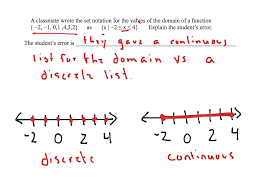 A classmate wrote the set notation for the values of the domain of a function
{ -2, -1, 0,1 ,4,3,2} as {x | -2 ≤ x ≤ 4}. Explain the student's error.
The student's error is they gave a continuous
list for the domain vs. a
discrete list.
-2 0 2 4 -2 0 2 4
discrete continuous